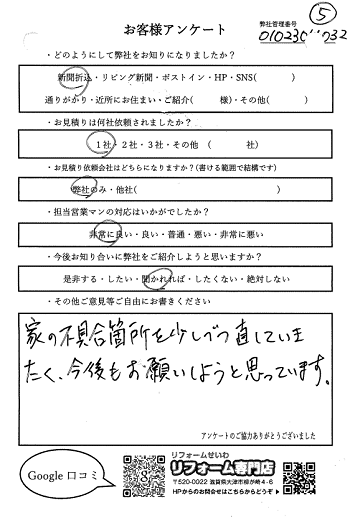 ⑤
お客様アンケート
弊社管理番号
・どのようにして弊社をお知りになりましたか？
新聞折込・リビング新聞・ポストイン・HP・SNS(　　　　)
通りがかり・近所にお住まい・ご紹介(　　　様)・その他(　　　　)
・お見積りは何社依頼されましたか？
1社・2社・3社・その他（　　　社）
・お見積り依頼会社はどちらになりますか？(書ける範囲で結構です)
弊社のみ・他社(　　　　　　　　　　　　　)
・担当営業マンの対応はいかがでしたか？
非常に良い・良い・普通・悪い・非常に悪い
・今後お知り合いに弊社をご紹介しようと思いますか？
是非する・したい・聞かれれば・したくない・絶対しない
・その他ご意見等ご自由にお書きください
家の不具合箇所を少しづつ直していき
たく、今後もお願いしようと思っています。
アンケートのご協力ありがとうございました
Google 口コミ
リフォームせいわ
リフォーム専門店
〒520-0022 滋賀県大津市柳が崎4-6
HPからのお問合せはこちらからどうぞ